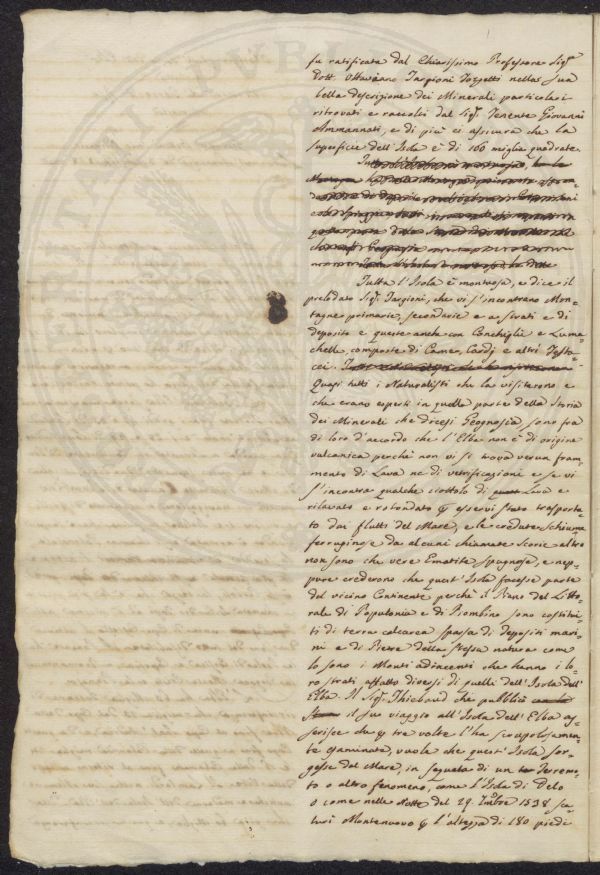 fu ratificata dal Chiarissimo Professore Sigr
Dott. Ottaviano Targioni Tozzetti nella sua
bella descrizione dei Minerali particolari
ritrovati e raccolti dal Sigr Tenente Giovanni
Ammannati, e di più ci assicura che la
superficie dell'Isola è di 166 miglia quadrate.
Tutta l'Isola è montuosa, e dice il
prelodato Sigr Targioni, che vi s'incontrano Mon-
tagne primarie, secondarie e a strati e di
deposito e queste anche con Conchiglie e Luma-
chelle, composte di Came, Cardj e altri Testa-
cei.
Quasi tutti i Naturalisti che la visitarono e
che erano esperti in quella parte della Storia
dei Minerali che dicesi Geognosia, sono fra
di loro d'accordo che l'Elba non è di origine
vulcanica perchè non vi si trova verun fram-
mento di Lava ne di vetrificazione e se vi
s'incontra qualche ciottolo di Lava e
rilavato e rotondato esservi stato trasporta-
to dai flutti del Mare, e le credute schiume
ferruginose da alcuni chiamate Scorie altro
non sono che vere Ematite spugnose, e nep-
pure crederono che quest'Isola facesse parte
del vicino Continente perchè il Piano del Litto-
rale di Populonia e di Piombino sono costitui-
ti di terra calcarea sparsa di depositi mari-
ni e di Pietre della stessa natura come
lo sono i Monti adiacenti che hanno i lo-
ro strati affatto diversi di quelli dell'Isola dell'
Elba. Il Sigr Thiebaud che pubblicò
il suo viaggio all'Isola dell'Elba as-
serisce che tre volte l'ha scrupolosamen-
te esaminata, vuole che quest'Isola sor-
gesse dal Mare, in seguela di un Terremo-
to o altro fenomeno, come l'Isola di Delo
o come nella Notte del 29. 1538 sca-
turì Montenuovo l'altezza di 180 piedi